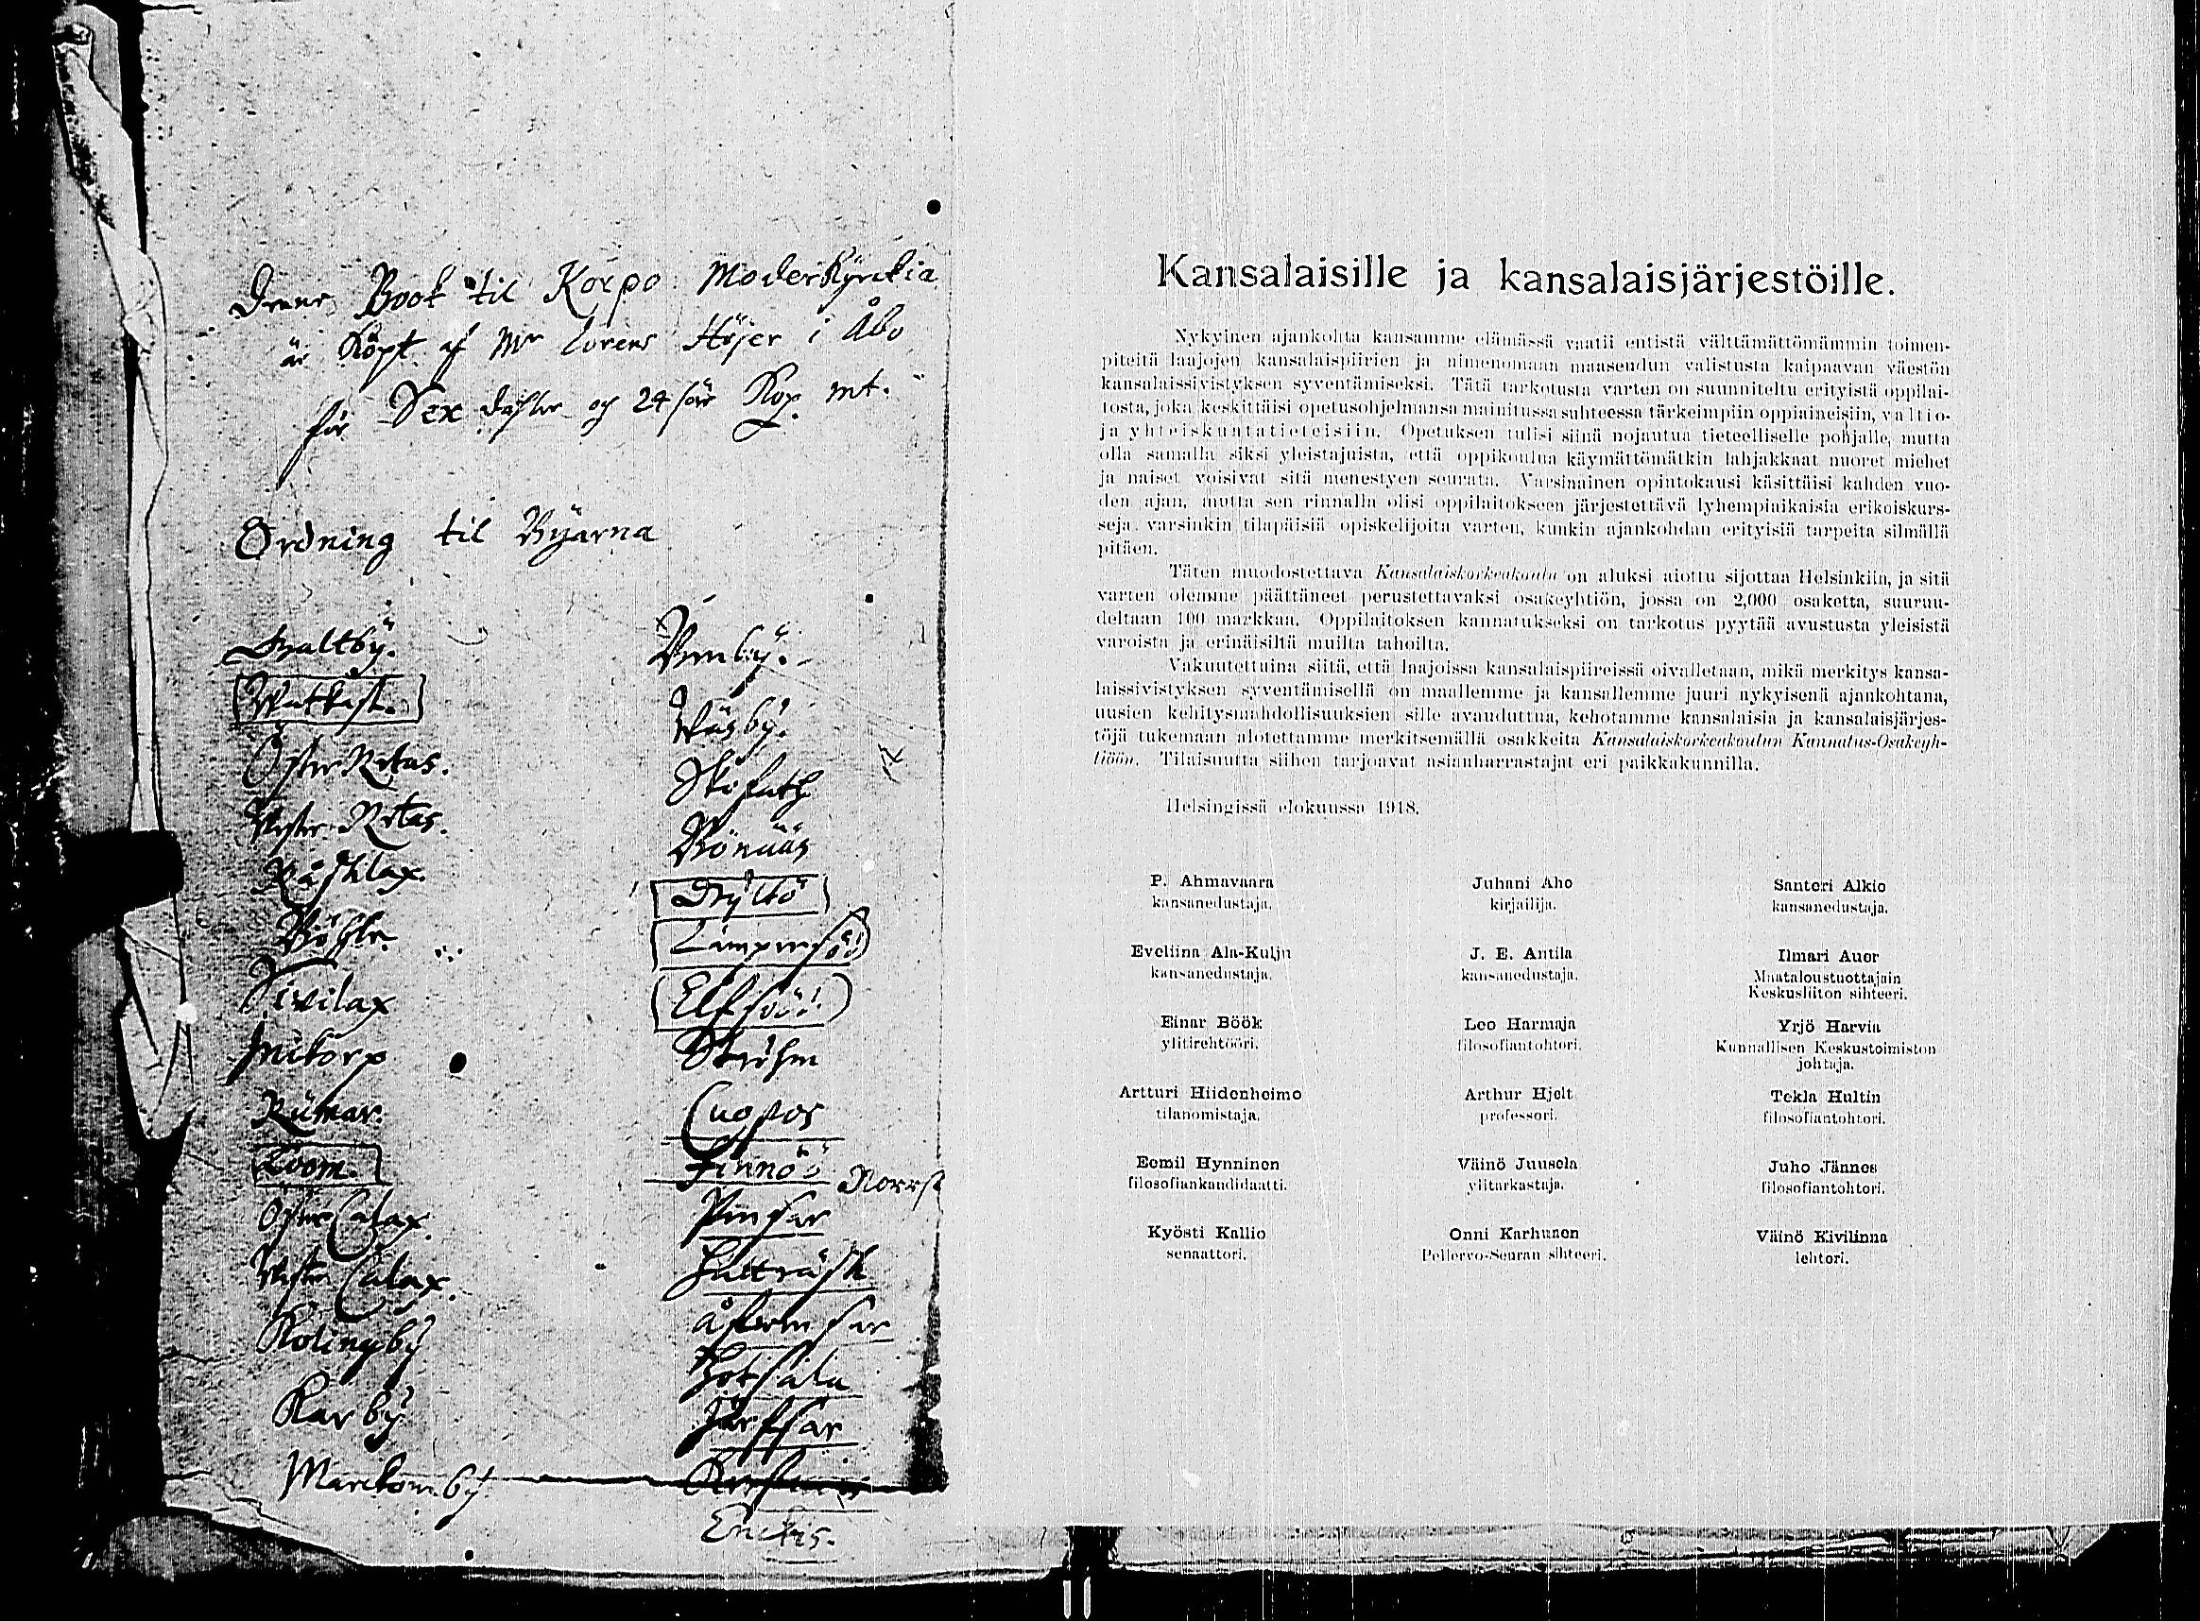 Denne Book til Korpo Moderkyrckia
är Köpt af Mr Lorens Höjer i Åbo
för Sex daler og 24 för Kop. mt.
Ordning til Byarna
Wattkast.
Öster Retas.
Wester Retas.
Råsklax.
Wivilax
Rumar.
Loom.
Öster Calax.
Wester Calax.
Kolingby
Karby
Marckomby
Wäsby.
Bönnäs
Dyltö
Limpersö
Elfsöö
Ströhm
Finnö Norrst
Hutträsk
Järfsar
Enckis.
Kansalaisille ja kansalaisjärjestöille.
Nykyinen ajankohta kansamme elämässä vaatii entistä välttämättömämmin toimen-
piteitä laajojen kansalaispiirien ja nimenomaan maaseudun valistusta kaipaavan väestön
kansalaissivistyksen syventämiseksi. Tätä tarkotusta varten on suunniteltu erityistä oppilai-
tosta, joka keskittäisi opetusohjelmansa mainitussa suhteessa tärkeimpiin oppiaineisiin, valtio-
ja yhteiskuntatieteisiin. Opetuksen tulisi siinä nojautua tieteelliselle pohjalle, mutta
olla samalla siksi yleistajuista, että oppikoulua käymättömätkin lahjakkaat nuoret miehet
ja naiset voisivat sitä menestyen seurata. Varsinainen opintokausi käsittäisi kahden vuo-
den ajan, mutta sen rinnalla olisi oppilaitokseen järjestettävä lyhempiaikaisia erikoiskurs-
seja varsinkin tilapäisiä opiskelijoita varten, kunkin ajankohdan erityisiä tarpeita silmällä
pitäen.
Täten muodostettava Kansalaiskorkeakoulu on aluksi aiottu sijottaa Helsinkiin, ja sitä
varten olemme päättäneet perustettavaksi osakeyhtiön, jossa on 2,000 osaketta, suuruu-
deltaan 100 markkaa. Oppilaitoksen kannatukseksi on tarkotus pyytää avustusta yleisistä
varoista ja erinäisiltä muilta tahoilta.
Vakuutettuina siitä, että laajoissa kansalaispiireissä oivalletaan, mikä merkitys kansa-
laissivistyksen syventämisellä on maallemme ja kansallemme juuri nykyisenä ajankohtana,
uusien kehitysmahdollisuuksien sille avauduttua, kehotamme kansalaisia ja kansalaisjärjes-
töjä tukemaan alotettamme merkitsemällä osakkeita Kansalaiskorkeakoulun Kannatus-Osakeyh-
tiöön. Tilaisuutta siihen tarjoavat asianharrastajat eri paikkakunnilla.
Helsingissä elokuussa 1918.
P. Ahmavaara Juhani Aho Santeri Alkio
kansanedustaja. kirjailija. kansanedustaja.
Eveliina Ala-Kulju J. E. Antila Ilmari Auer
kansanedustaja. kansanedustaja. Maataloustuottajain
Keskusliiton sihteeri.
Einar Böök Leo Harmaja Yrjö Harvia
ylitirehtööri. filosofiantohtori. Kunnallisen Keskustoimiston
johtaja.
Artturi Hiidenheimo Arthur Hjelt Tekla Hultin
tilanomistaja. professori. filosofiantohtori.
Eemil Hynninen Väinö Juusela Juho Jännes
filosofiankandidaatti. ylitarkastaja. filosofiantohtori.
Kyösti Kallio Onni Karhunen Väinö Kivilinna
senaattori. Pellervo-Seuran sihteeri. lehtori.